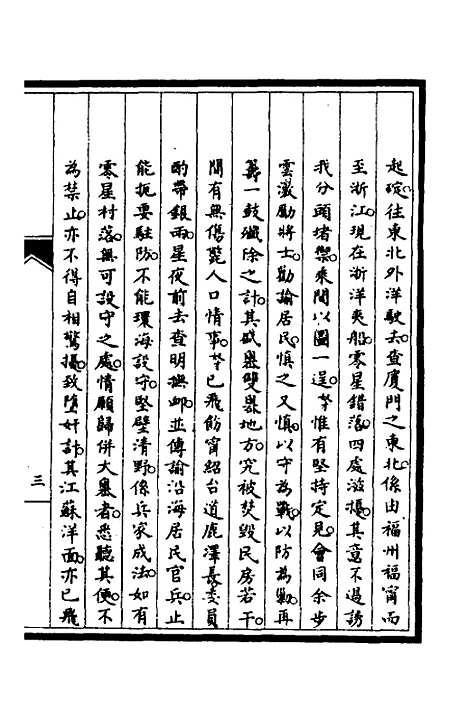 起碇往東北外洋駛去查厦門之東北係由福州福甯而
至浙江現在浙洋夾船零星錯落四處游擾其意不過誘
我分頭堵禦乘間以圖一逞等惟有堅持定見會同余步
雲激勵將士勸諭居民慎之又慎以守為戰以防為勦再
籌一鼓殲除之計其咸墨雙礐地方究被焚毀民房若干
間有無傷斃人口情事等已飛飭甯紹台道鹿澤長委員
酌帶銀兩星夜前去查明撫卹並傳諭沿海居民官兵止
能扼要駐防不能環海設守堅壁清野係兵家成法如有
零星村落無可設守之處情願歸併大嶴者悉聽其便不
為禁止亦不得自相驚擾致墮奸計其江蘇洋面亦已飛
三